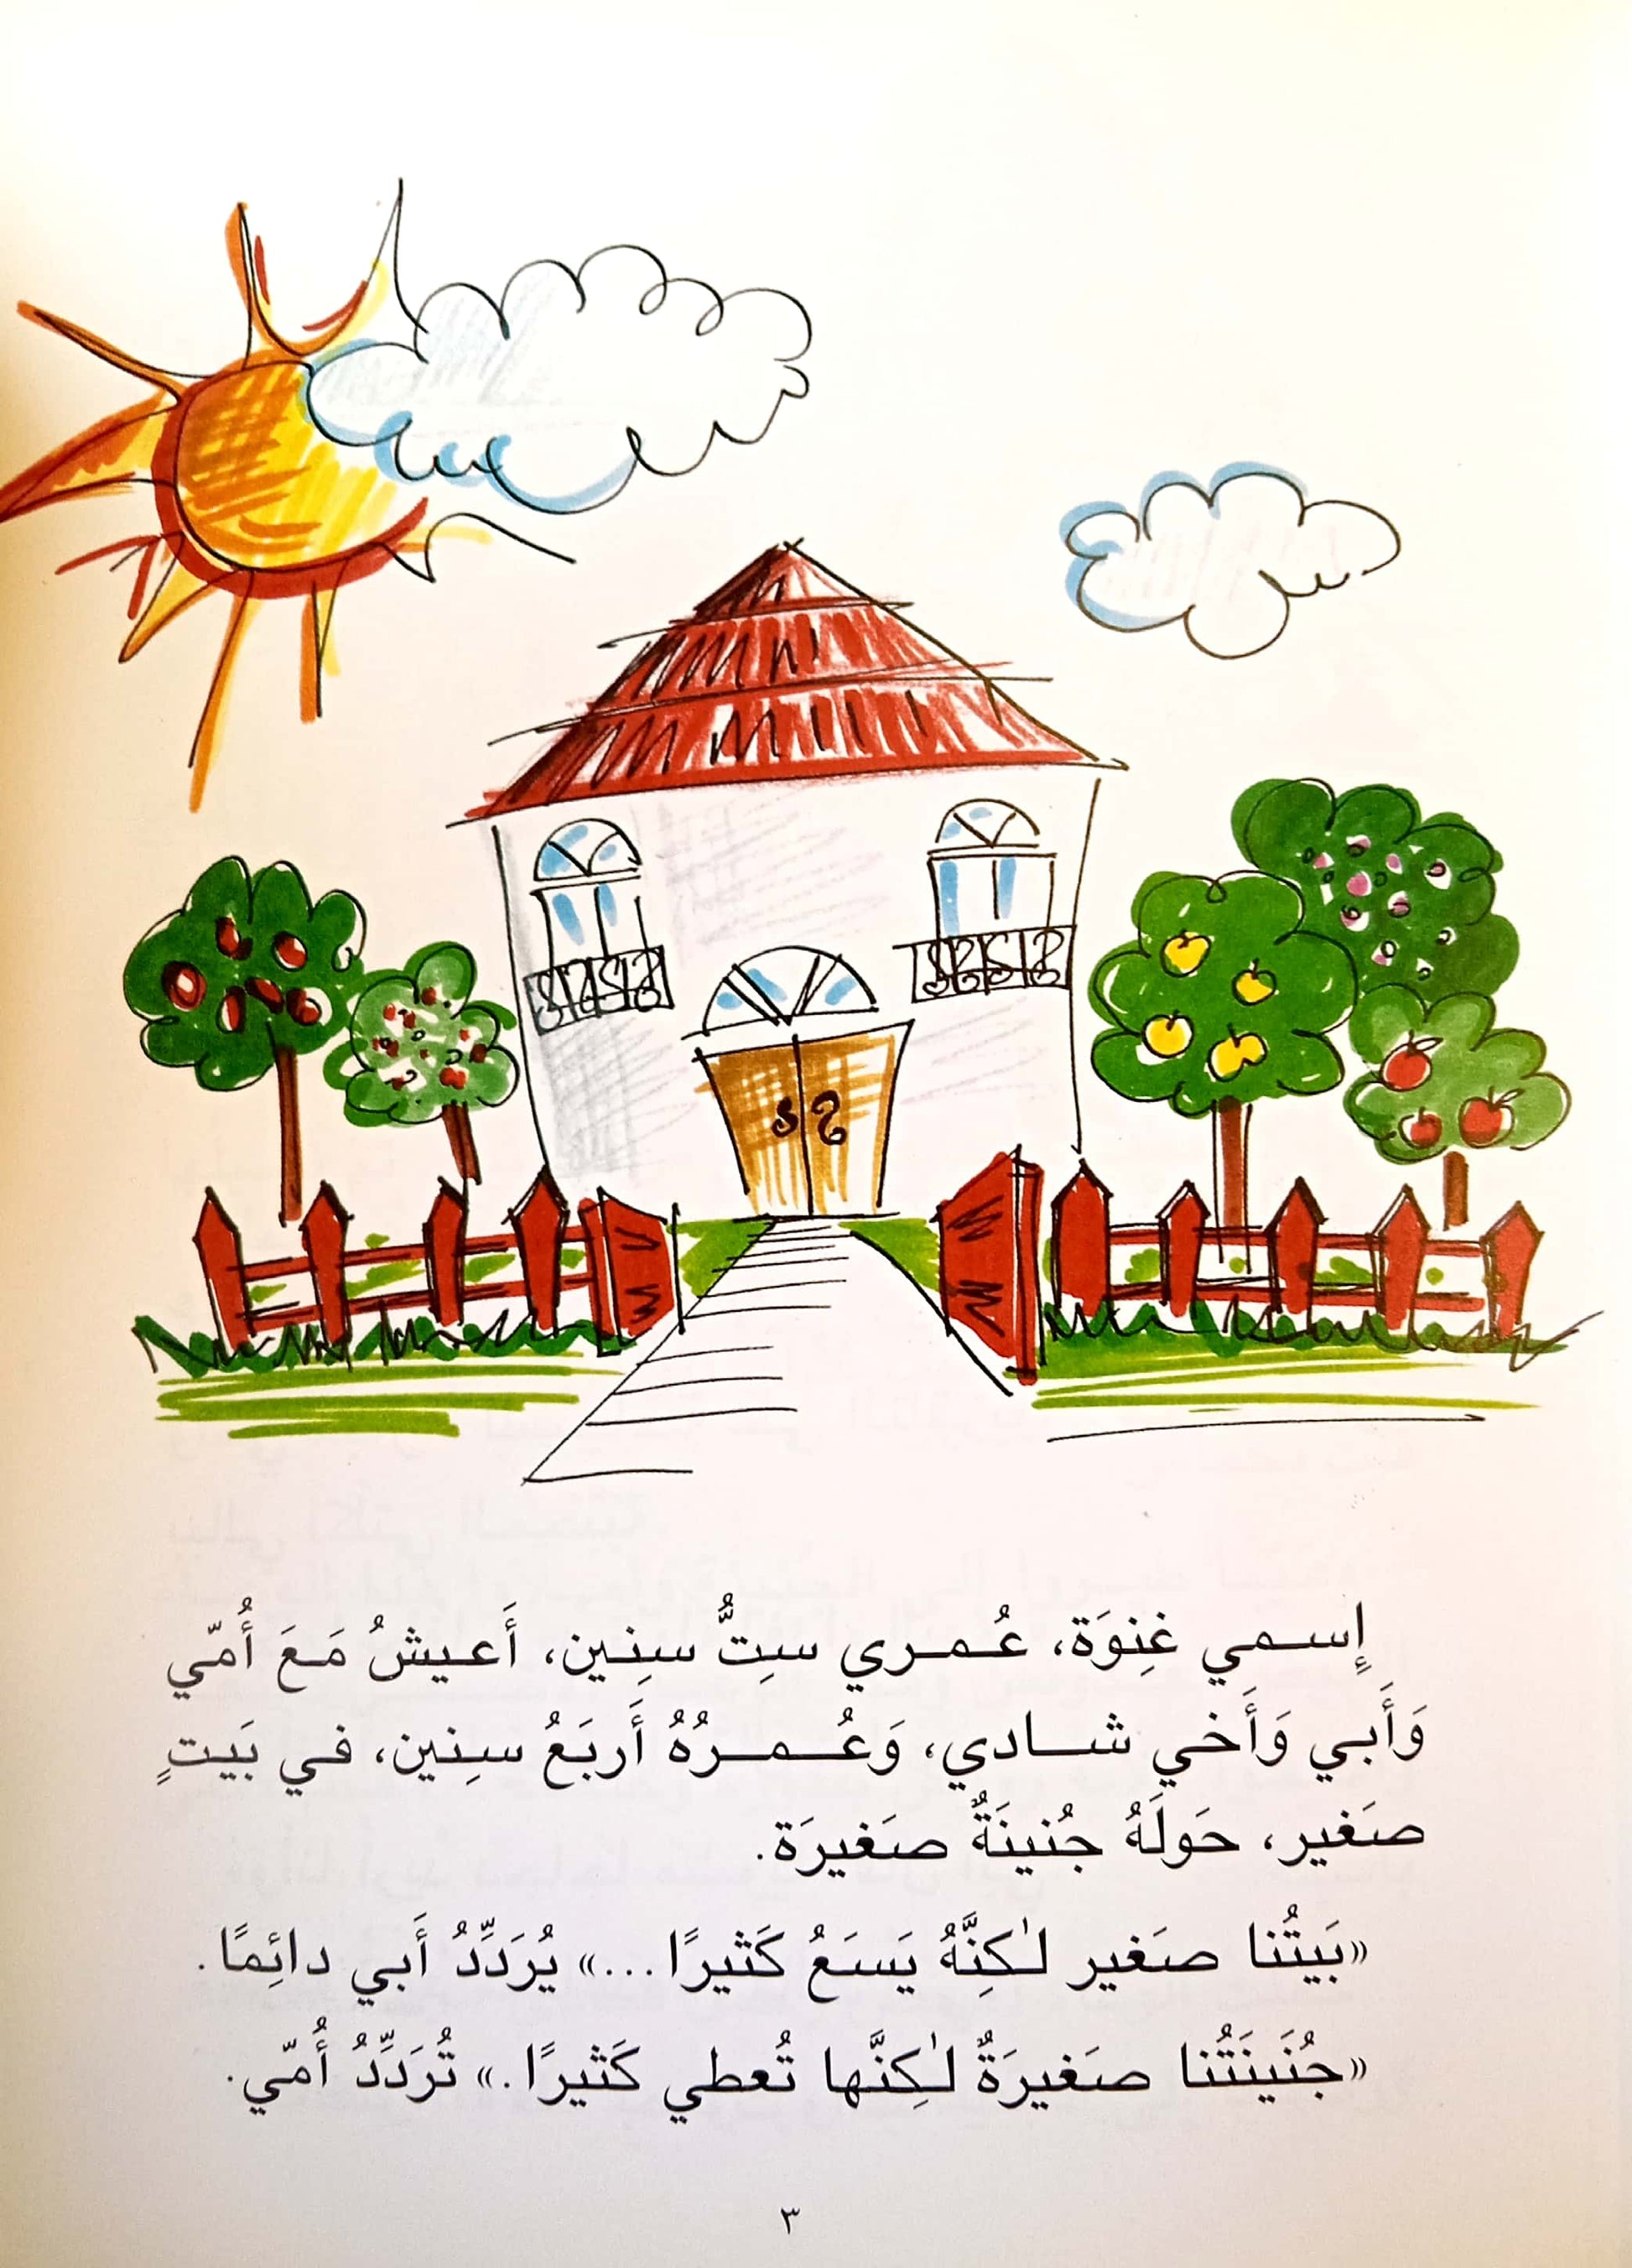 إِسمي غِنوَة، عُمري سِتُّ سنِين، أَعيشُ مَعَ أُمّي
وَأَبي وَأَخي شادي، وَعُمرُهُ أَربَعُ سنِين، في بَيتٍ
صَغير، حَولَهُ جُنينَةٌ صَغيرَة.
«بَيتُنا صَغير لٰكِنَّهُ يَسَعُ كَثيرًا...» يُرَدِّدُ أَبي دائِمًا.
«جُنَينَتُنا صَغيرَةٌ لٰكِنَّها تُعطي كَثيرًا.» تُرَدِّدُ أُمّي.
٣